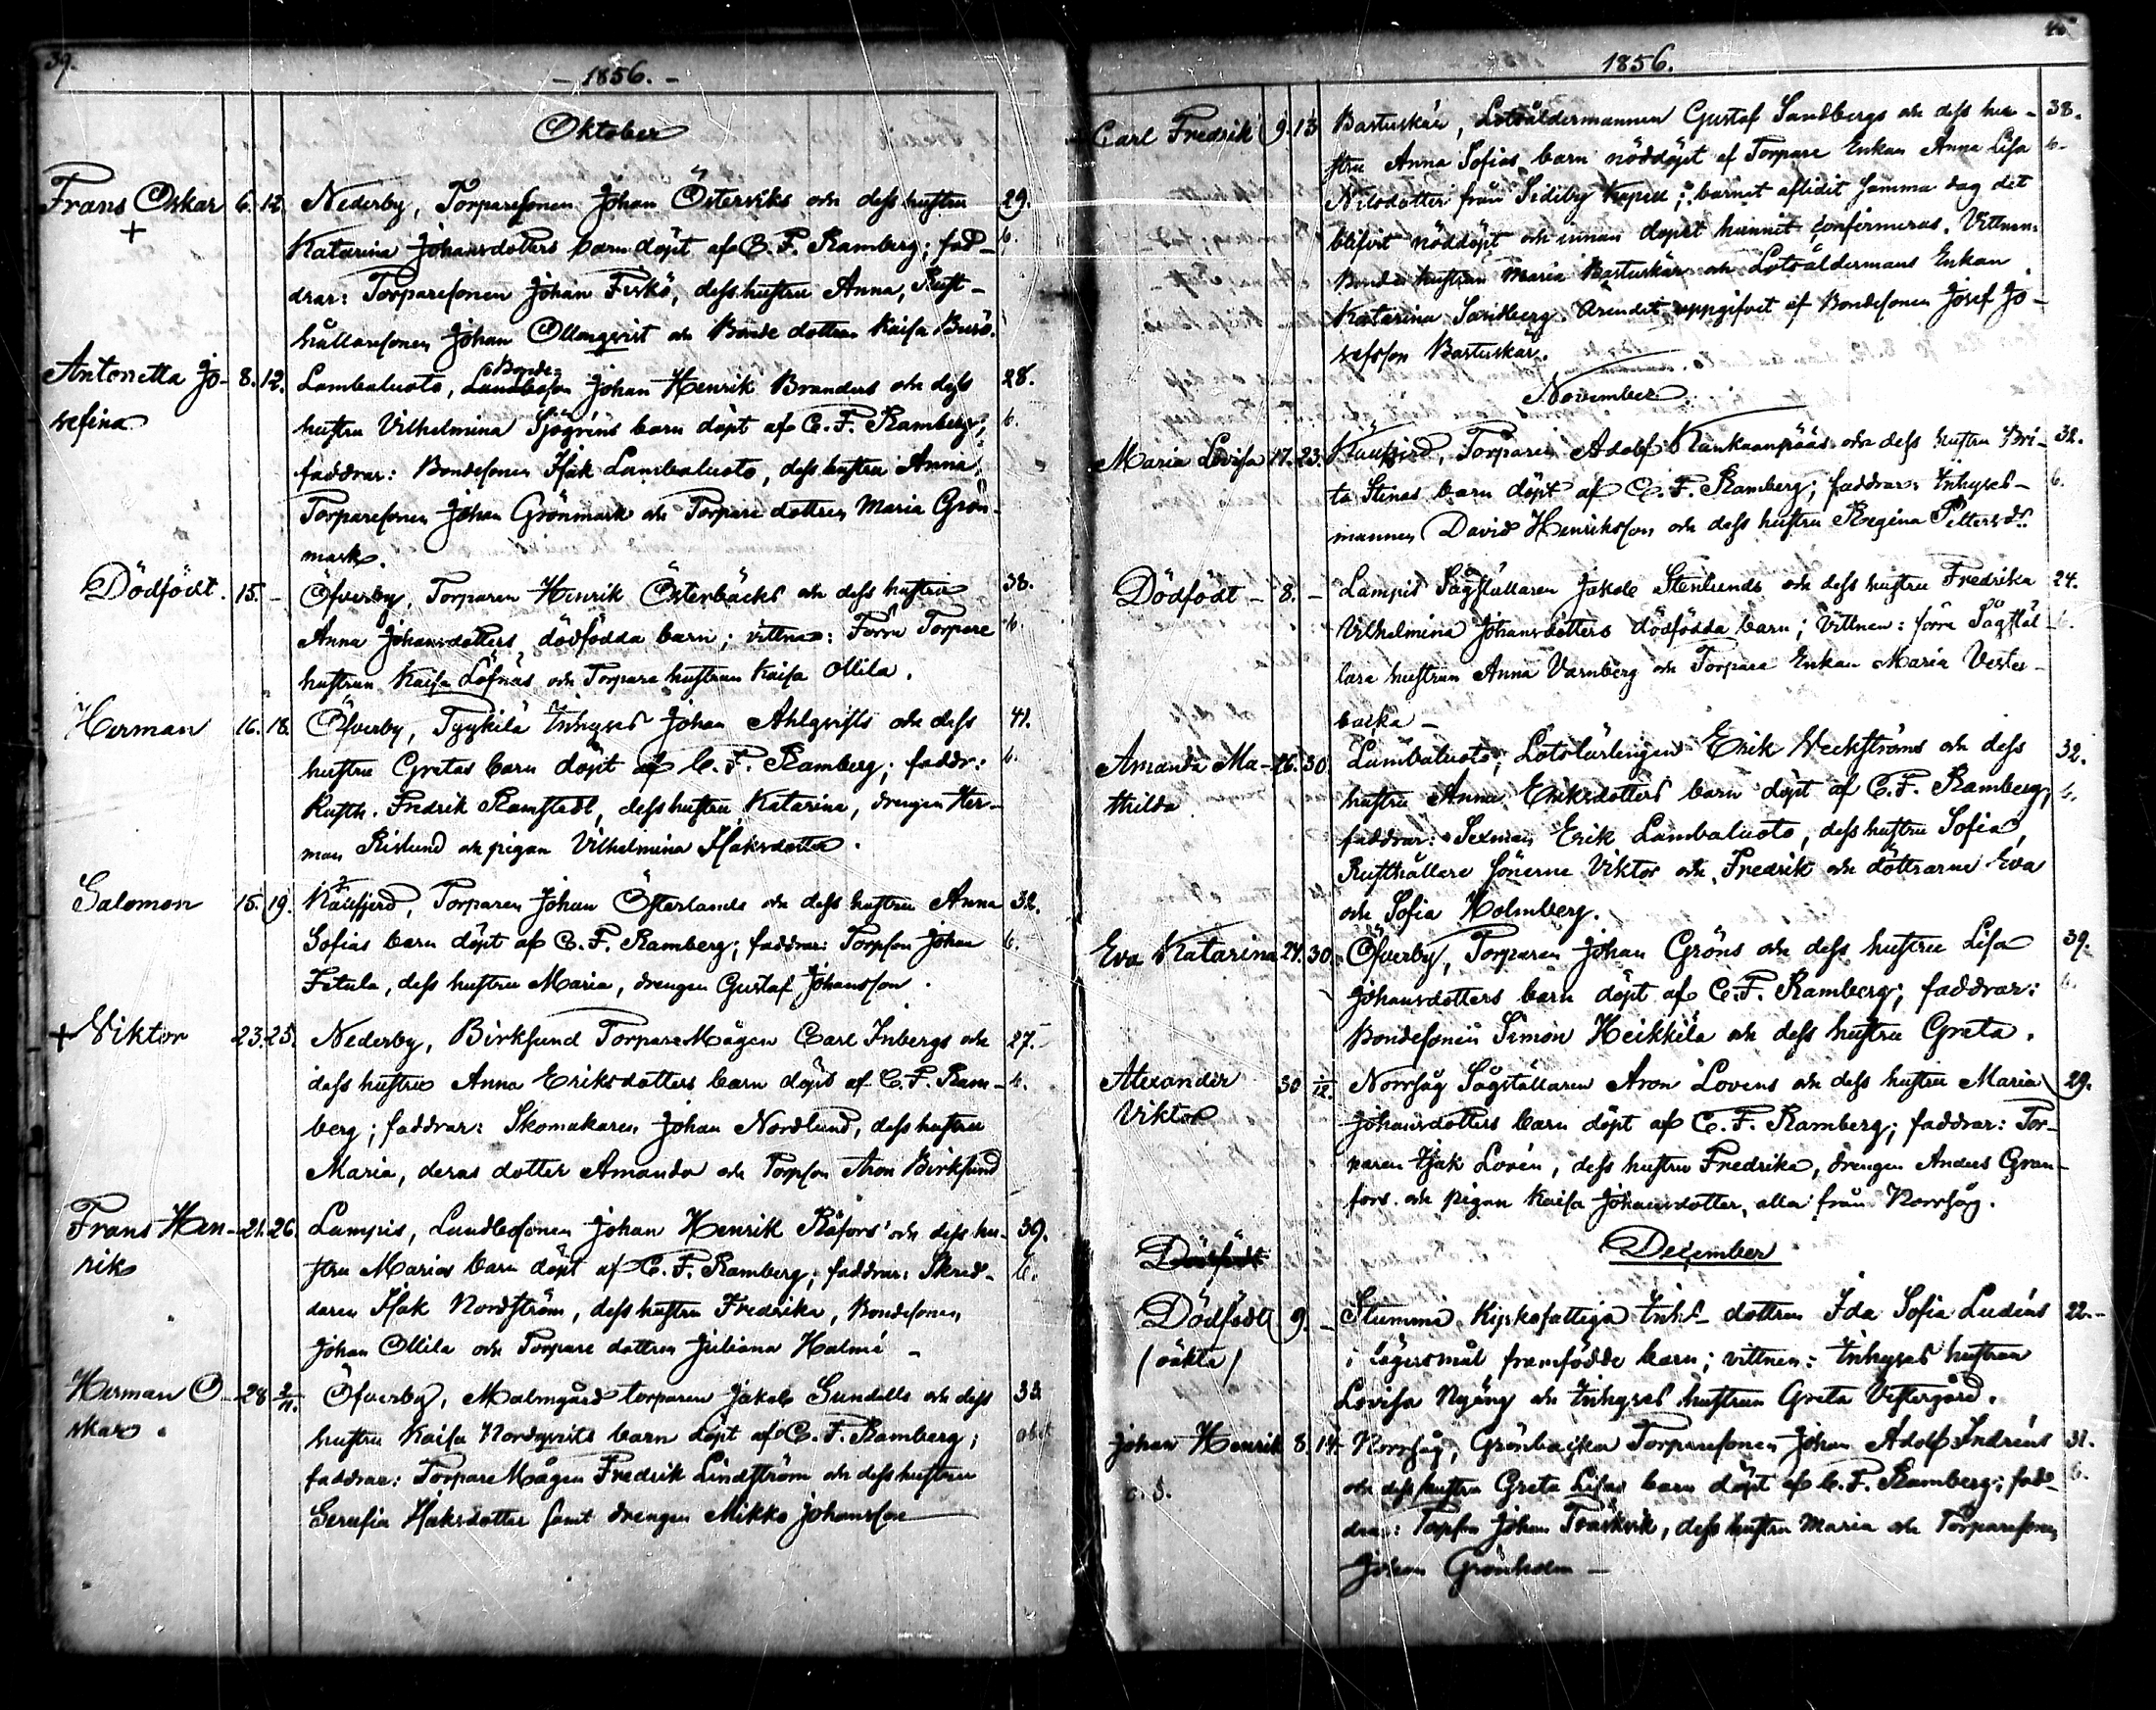 39.
- 1856. -
Oktober
Frans Oskar 6. 12. Nederby, Torparesonen Johan Österviks och dess hustru 29.
+ Katarina Johansdotters barn döpt af C. F. Ramberg; fad- b.
drar: Torparesonen Johan Ferkö, dess hustru Anna, Rust-
hållaresonen Johan Ollonqvist och Bonde dottren Kaisa Burö.
Antonetta Jo- 8. 12. Lambaluoto, Bonde- Johan Henrik Branders och dess 28.
sefina hustru Vilhelmina Sjögréns barn döpt af C. F. Ramberg; b.
faddrar: Bondesonen Isak Lambaluoto, dess hustru Anna,
Torparesonen Johan Grönmark och Torpare dottren Maria Grön-
mark.
Dödfödt. 15. - Öfverby, Torparen Henrik Österbäcks och dess hustru 38.
Anna Johansdotters dödfödda barn; vittnen: Förra Torpare b.
hustrun Kaisa Löfnäs och Torpare hustrun Kaisa Ollila.
Herman 16. 18. Öfverby, Tyykilä Inhyses Johan Ahlqvists och dess 41.
hustru Gretas barn döpt af C. F. Ramberg; faddr: b.
Rusth. Fredrik Ramstedt, dess hustru Katarina, drengen Her-
man Rislund och pigan Vilhelmina Isaksdotter.
Salomon 15. 19. Käufjerd, Torparen Johan Österlunds och dess hustru Anna 32.
Sofias barn döpt af C. F. Ramberg; faddrar: Torpson Johan b.
Fetula, dess hustru Maria, drengen Gustaf Johansson.
+ Viktor 23. 25. Nederby, Birksund Torpare Mågen Carl Inbergs och 27.
dess hustru Anna Eriksdotters barn döpt af C. F. Ram- b.
berg; faddrar: Skomakaren Johan Nordlund, dess hustru
Maria, deras dotter Amanda och Torpson Aron Birksund
Frans Hen- 21. 26. Lampis, Landbosonen Johan Henrik Råfors och dess hu- 39.
rik stru Marias barn döpt af C. F. Ramberg; faddrar: Skred- b.
daren Isak Nordström, dess hustru Fredrika, Bondesonen
Johan Ollila och Torpare dottren Juliana Halmé -
Herman O- 28 2/11. Öfverby, Malmgård torparen Jakob Sundells och dess 33
skar. hustru Kaisa Nordqvists barn döpt af C. F. Ramberg;
faddrar: Torpare Mågen Fredrik Lindström och dess hustru
Serafia Isaksdotter samt drengen Mikko Johansson
1856.
Carl Fredrik 9. 13 Bastuskär, Lotsåldermannen Gustaf Sandbergs och dess hu- 38.
stru Anna Sofias barn nöddöpt af Torpare Enkan Anna Lisa b.
Nilsdotter från Sideby Kapell; barnet aflidit samma dag det
blifvit nöddöpt och innan dopet hunnit confirmeras. Vittnen:
Bonde hustrun Maria Bastuskär och Lotsåldermans Enkan
Katarina Sandberg. Ärendet uppgifvet af Bondesonen Josef Jo-
sefsson Bastuskär.
November.
Maria Lovisa 17. 23. Torparen Adolf Kankaanpääs och dess hustru Bri- 32.
ta Stinas barn döpt af C. F. Ramberg; faddrar: Inhyses- b.
mannen David Henriksson och dess hustru Regina Pettersdr.
Dödfödt - 8. - Lampis Sågställaren Jakob Stenlunds och dess hustru Fredrika 24.
Vilhelmina Johansdotters dödfödda barn; Vittnen: förra Sågstäl- b.
lare hustrun Anna Varnberg och Torpare Enkan Maria Vester-
backa -
Amanda Ma- 26. 30. Lambaluoto, Lotslärlingen Erik Veckströms och dess 32.
thilda hustru Anna Eriksdotters barn döpt af C. F. Ramberg; b.
faddrar: Sexman Erik Lambaluoto, dess hustru Sofia,
Rusthållare Sönerne Viktor och Fredrik och döttrarne Eva
och Sofia Holmberg.
Eva Katarina 24. 30. Öfverby, Torparen Johan Gröns och dess hustru Lisa 39.
Johansdotters barn döpt af C. F. Ramberg; faddrar: b.
Bondesonen Simon Heikkilä och dess hustru Greta.
Alexander 30 1/12. Norrsåg Sågställaren Aron Lovens och dess hustru Maria 29.
Viktor Johansdotters barn döpt af C. F. Ramberg; faddrar: Tor-
paren Isak Lovén, dess hustru Fredrika, drengen Anders Gran-
fors och pigan Kaisa Johansdotter, alla från Norrsåg.
Dödfödt December
Dödfödt 9. - Stumma Kyrkofattiga Inhs- dottren Ida Sofia Ludéns 22.
(oäkta) i lägersmål framfödde barn; vittnen: Inhyses hustrun
Lovisa Nyäng och Inhyses hustrun Greta Vestergård.
Johan Henrik 8. 14. Norrsåg, Grönbacka Torparesonen Johan Adolf Indréns 31.
och dess hustru Greta Lisas barn döpt af C. F. Ramberg; fad- b.
drar: Torpson Johan Träskvik, dess hustru Maria och Torparesonen
Johan Grönholm -